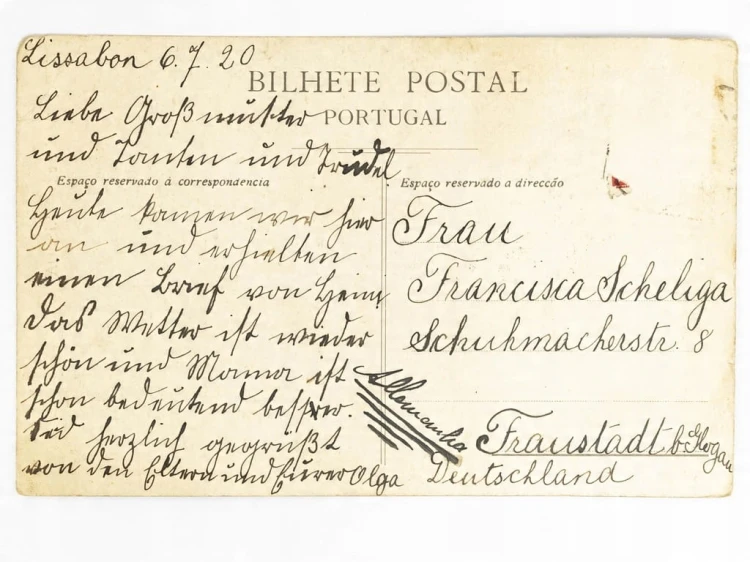 Lissabon 6.7.20
BILHETE POSTAL
PORTUGAL
Liebe Großmutter
und Tanten und Trudel
Espaço reservado á correspondencia
Heute kamen wir hier
an und erhielten
einen Brief von Heim
Das Wetter ist wieder
schön und Mama ist
schon bedeutend besser.
Seid herzlich gegrüßt
von den Eltern und Eurer Olga
Espaço reservado a direcção
Frau
Francisca Scheliga
Schuhmacherstr. 8
Allemanha
Fraustadt b. Glogau
Deutschland